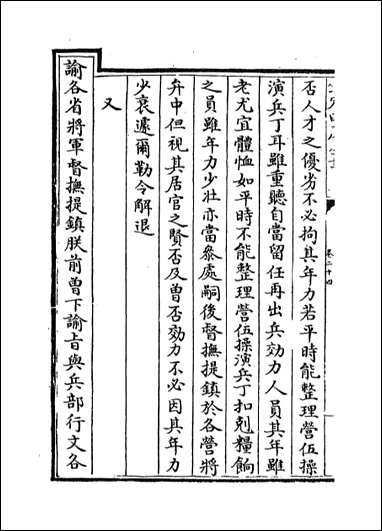 否人才之優劣不必拘其年力若平時能整理營伍操
演兵丁耳雖重聽自當留任再出兵効力人員其年雖
老尤宜體恤如平時不能整理營伍操演兵丁扣剋糧餉
之員雖年力少壯亦當叅處嗣後督撫提鎮於各營將
弁中但視其居官之賢否及曾否効力不必因其年力
少衰遽爾勒令解退
又
諭各省將軍督撫提鎮朕前曾下諭旨與兵部行文各
卷二十四